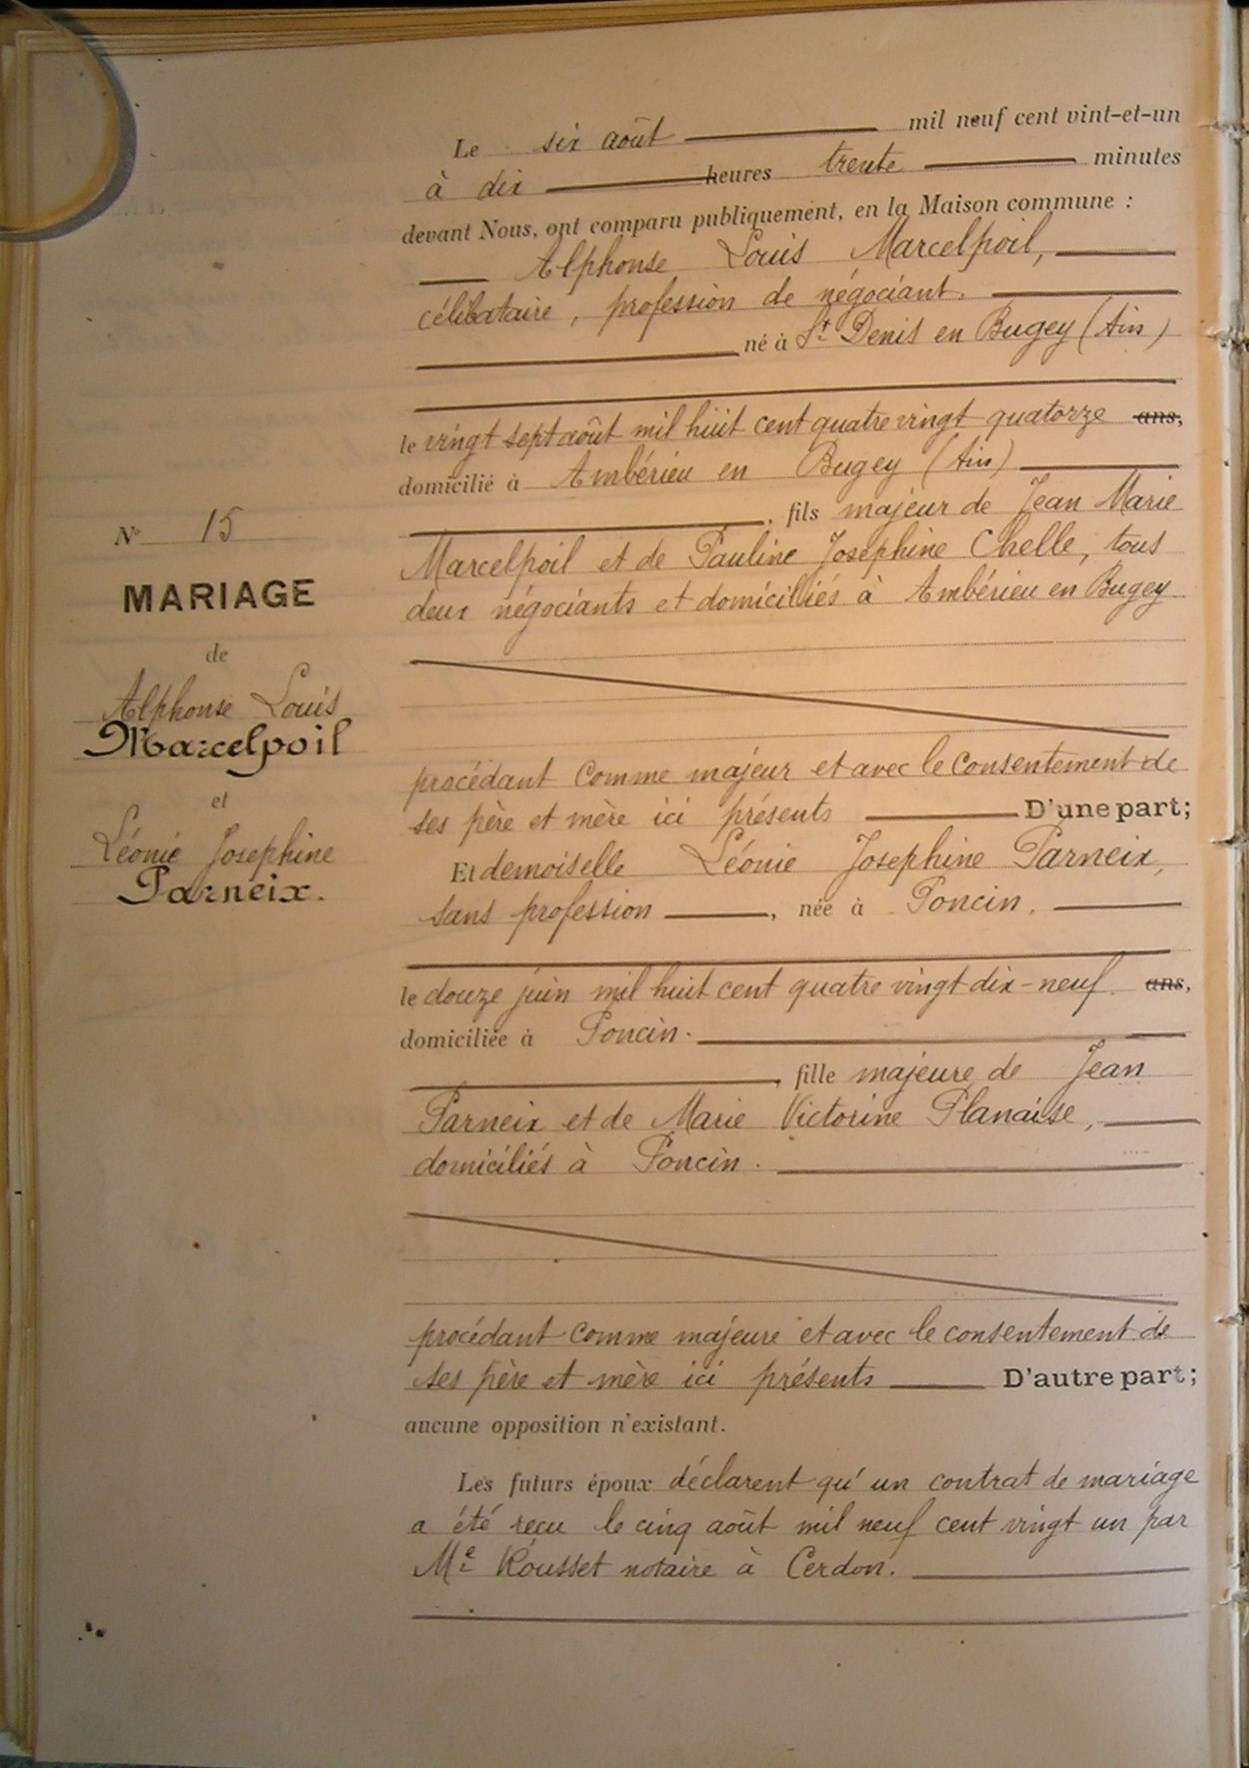 Le six août mil neuf cent vint-et-un
à dix heures trente minutes
devant Nous, ont comparu publiquement, en la Maison commune :
Alphonse Louis Marcelpoil,
célibataire, profession de négociant.
né à St Denis en Bugey (Ain)
le vingt sept août mil huit cent quatre vingt quatorze ans,
domicilié à Ambérieu en Bugey (Ain)
, fils majeur de Jean Marie
Marcelpoil et de Pauline Josephine Chelle, tous
deux négociants et domiciliés à Ambérieu en Bugey
procédant comme majeur et avec le consentement de
ses père et mère ici présents D'une part;
Et demoiselle Léonie Josephine Parneix,
sans profession, née à Poncin.
le douze juin mil huit cent quatre vingt dix-neuf. ans,
domiciliée à Poncin.
, fille majeure de Jean
Parneix et de Marie Victorine Planaise,
domiciliés à Poncin.
procédant comme majeure et avec le consentement de
ses père et mère ici présents D'autre part;
aucune opposition n'existant.
Les futurs époux déclarent qu'un contrat de mariage
a été reçu le cinq août mil neuf cent vingt un par
Me Rousset notaire à Cerdon.
No 15
MARIAGE
de
Alphonse Louis
Marcelpoil
et
Léonie Josephine
Parneix.